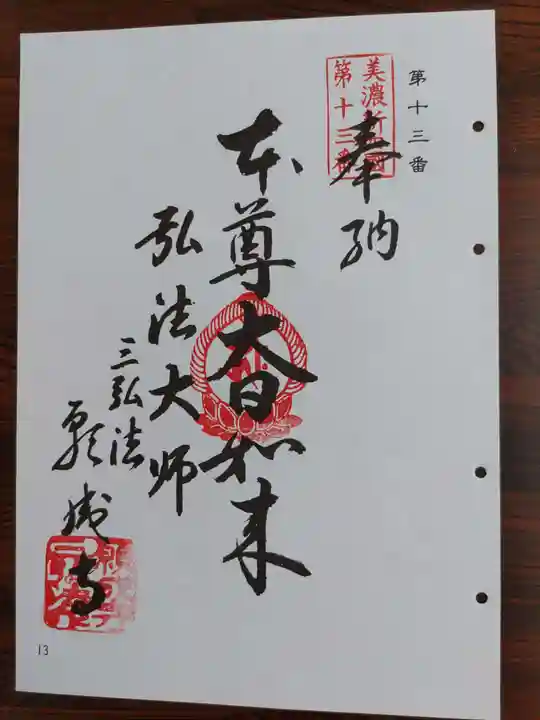 第十三番
美濃新四国
第十三番
奉納
本尊大日如来
弘法大师
三弘法
願成寺
13